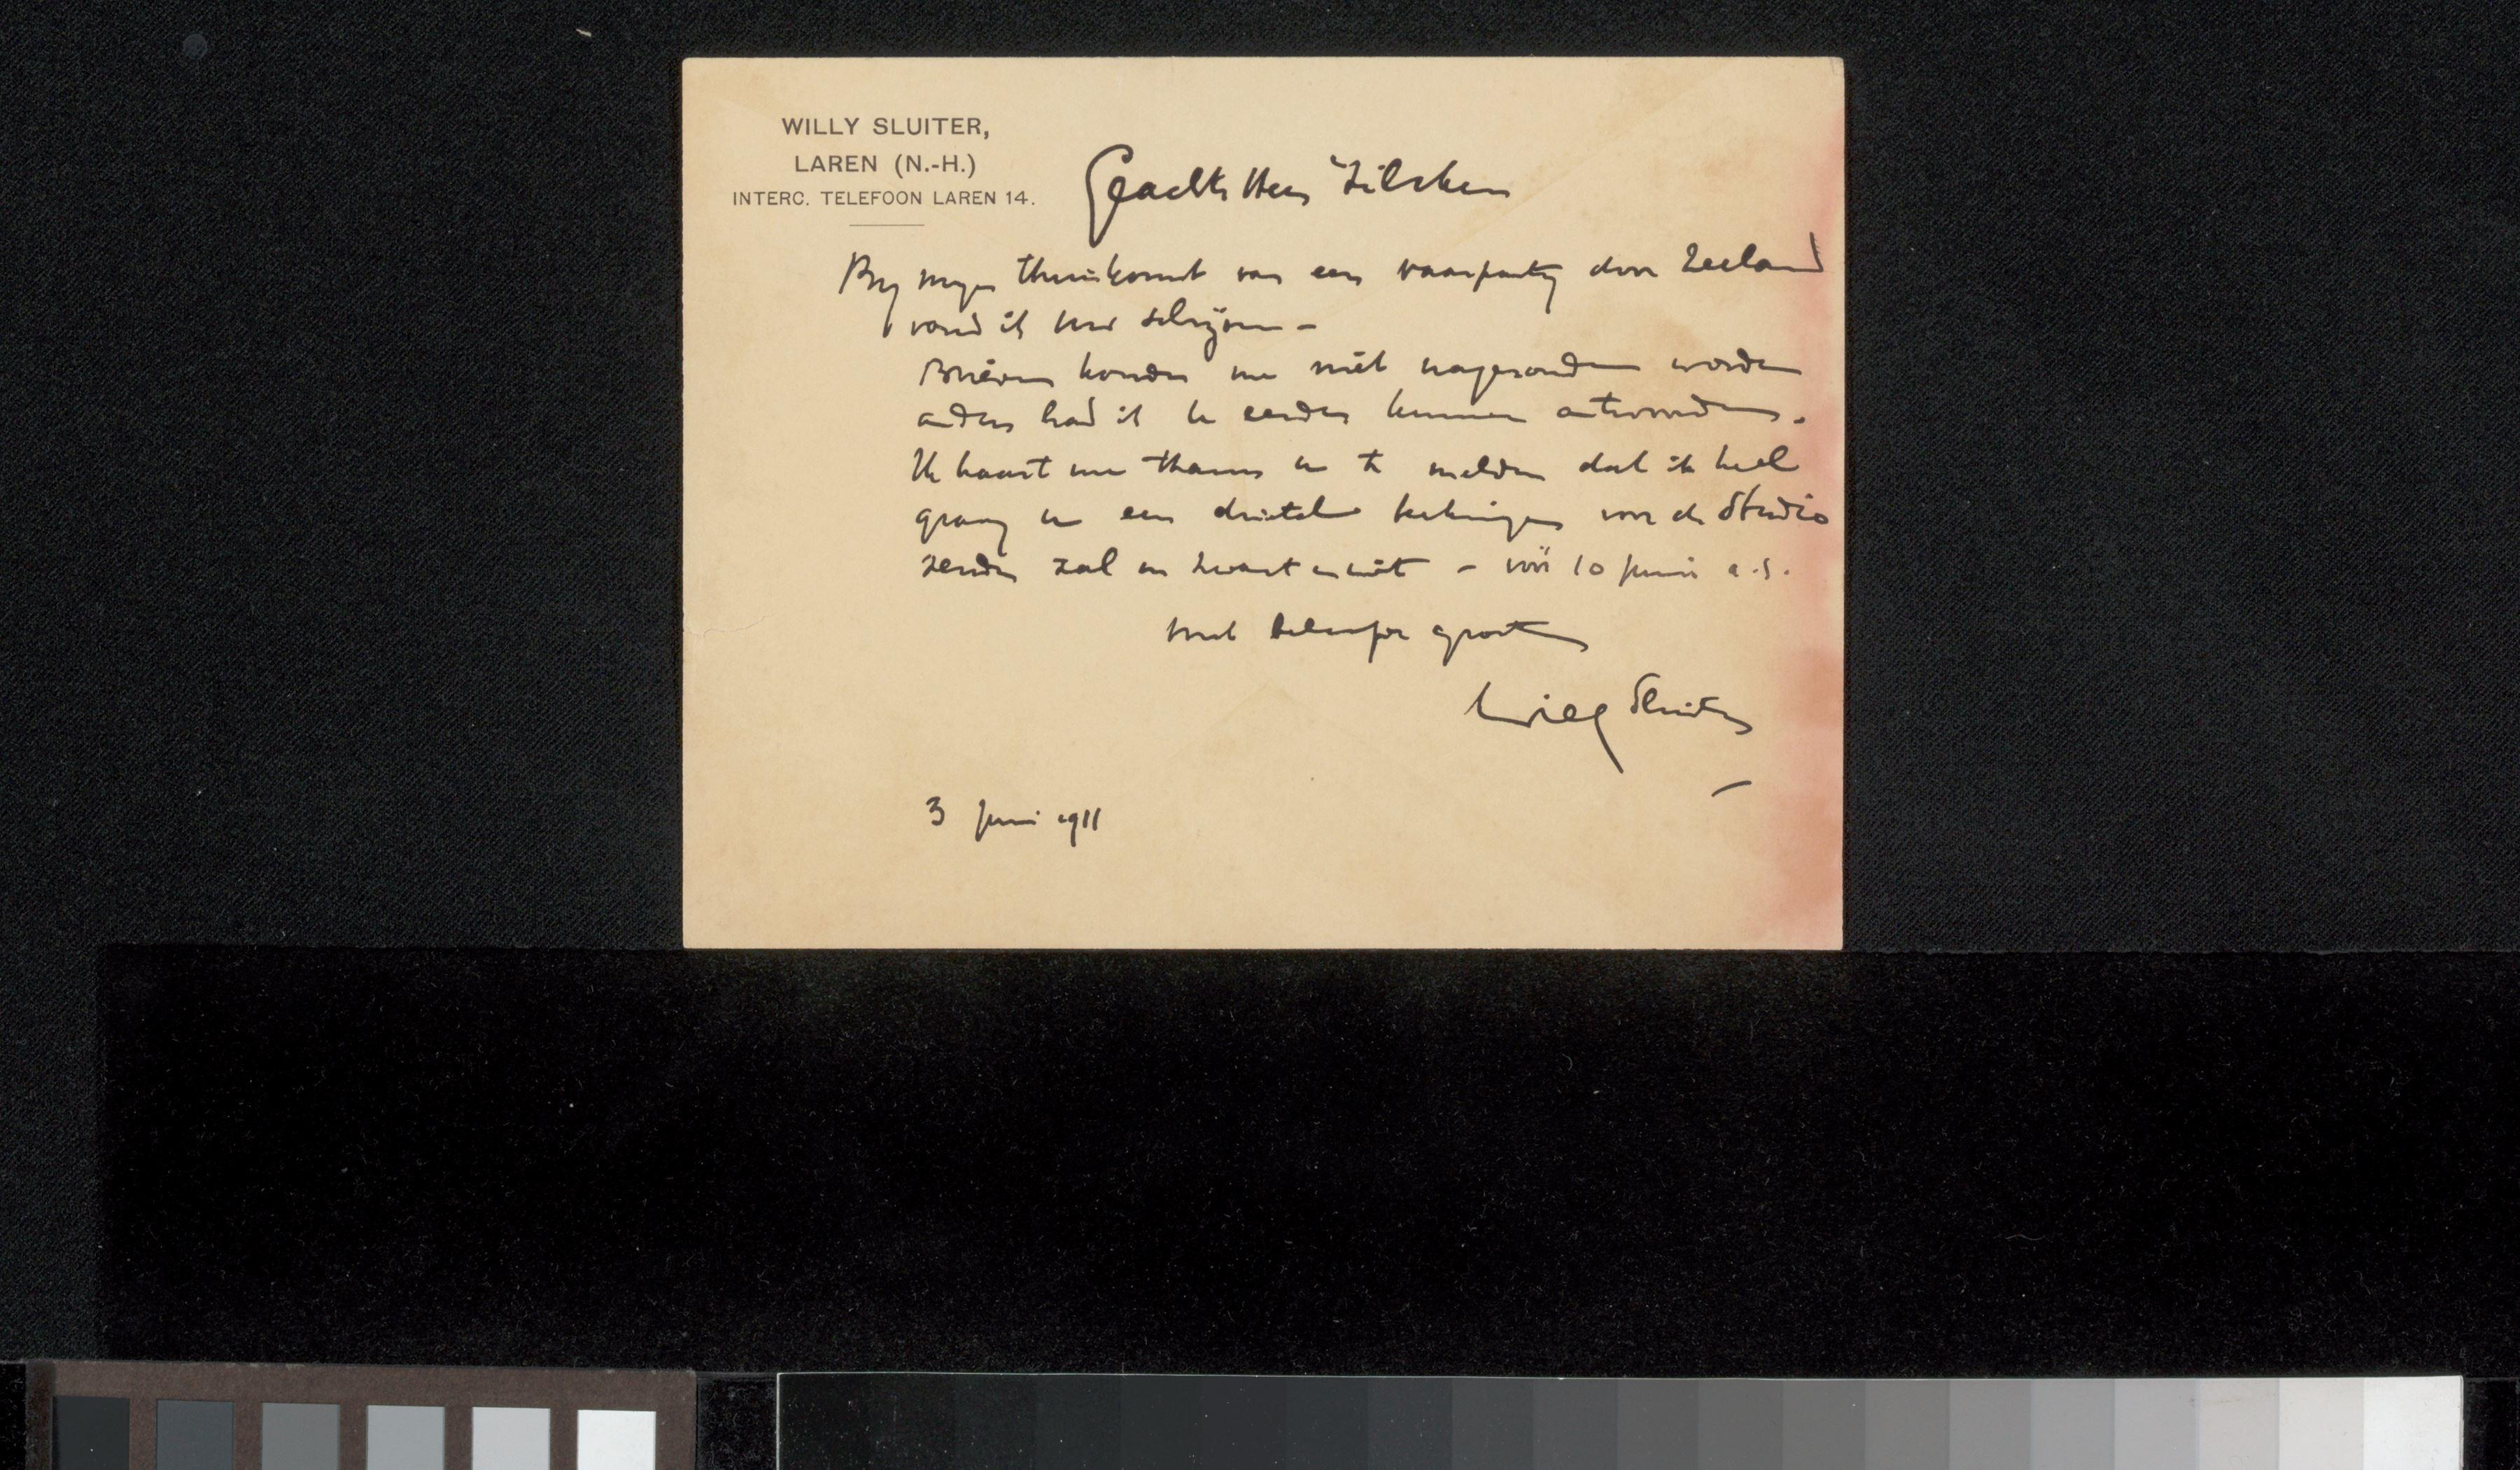 WILLY SLUITER,
LAREN (N.-H.)
INTERC. TELEFOON LAREN 14.
Geachte Heer Zilcken
By myn thuiskomst van een vaarparty door Zeeland
vond ik uw schrijven -
Brieven konden me niet nagezonden worden
anders had ik u eerder kunnen antwoorden.
Ik haast me thans u te melden dat ik heel
graag u een drietal teekeningen voor de Studio
zenden zal in zwart en wit - vóór 10 Juni a.s.
met beleefde groeten
Willy Sluiter
3 Juni 1911